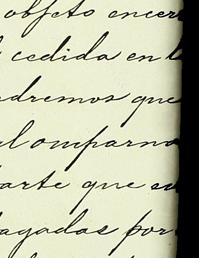 objeto encer
cedida en l
dremos que
al omparno
arte que en
agadas por